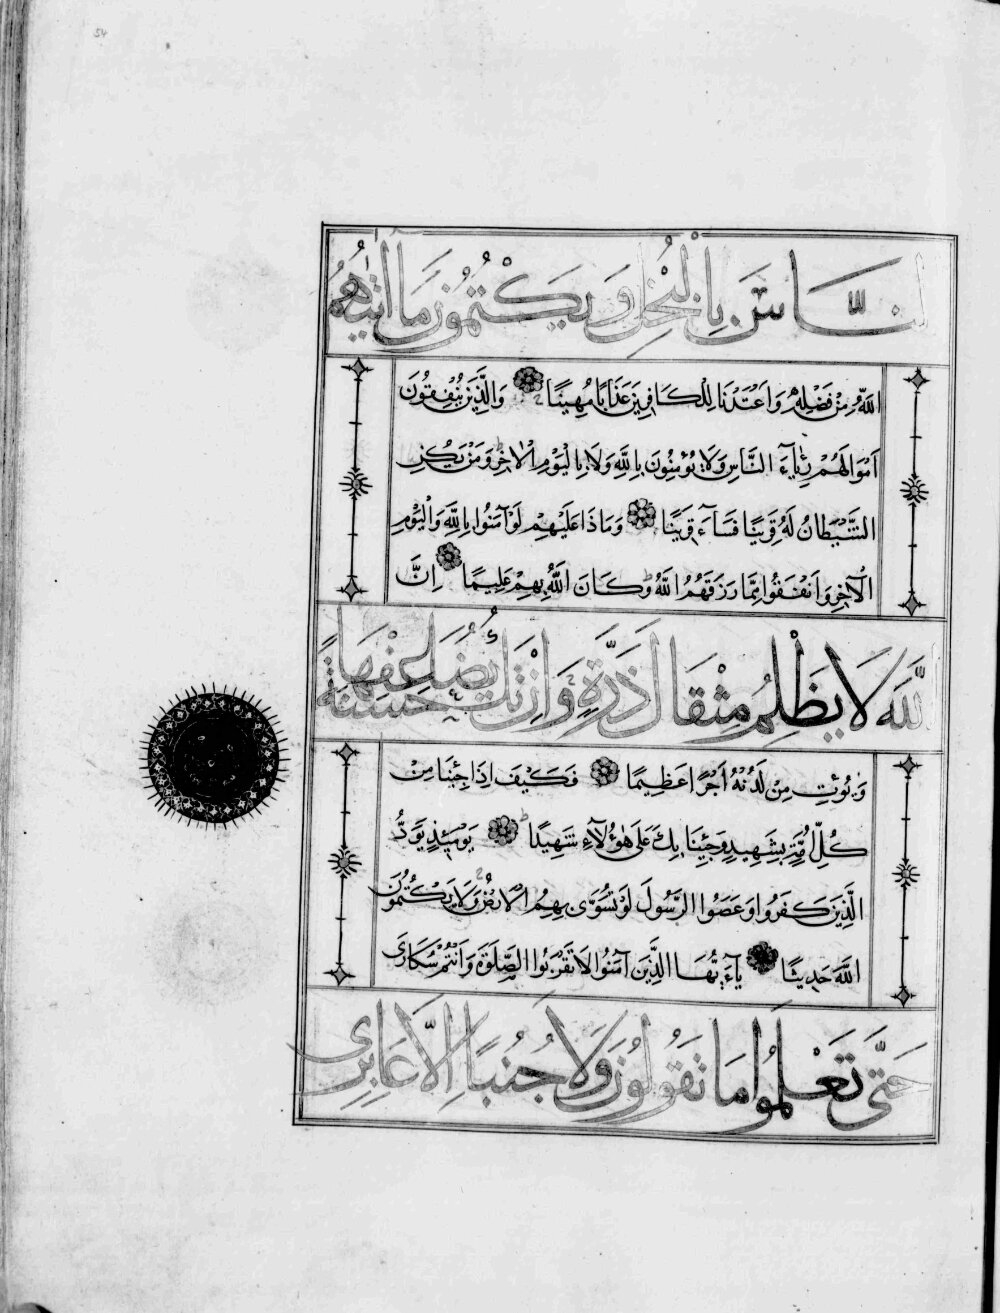 54
النَّاسَ بِالْبُخْلِ وَيَكْتُمُونَ مَا آتٰيهُمُ
اللّٰهُ مِنْ فَضْلِهِ وَاَعْتَدْنَا لِلْكَافِرِينَ عَذَابًا مُهِينًا وَالَّذِينَ يُنْفِقُونَ
اَمْوَالَهُمْ رِئَآءَ النَّاسِ وَلَا يُؤْمِنُونَ بِاللّٰهِ وَلَا بِالْيَوْمِ الْاٰخِرِ وَمَنْ يَكُنِ
الشَّيْطَانُ لَهُ قَرِينًا فَسَآءَ قَرِينًا وَمَاذَا عَلَيْهِمْ لَوْ آمَنُوا بِاللّٰهِ وَالْيَوْمِ
الْآخِرِ وَاَنْفَقُوا مِمَّا رَزَقَهُمُ اللّٰهُ وَكَانَ اللّٰهُ بِهِمْ عَلِيمًا اِنَّ
اللّٰهَ لَا يَظْلِمُ مِثْقَالَ ذَرَّةٍ وَاِنْ تَكُ حَسَنَةً يُضَاعِفْهَا
وَيُؤْتِ مِنْ لَدُنْهُ اَجْرًا عَظِيمًا فَكَيْفَ اِذَا جِئْنَا مِنْ
كُلِّ اُمَّةٍ بِشَهِيدٍ وَجِئْنَا بِكَ عَلَى هٰؤُلَآءِ شَهِيدًا يَوْمَئِذٍ يَوَدُّ
الَّذِينَ كَفَرُوا وَعَصَوُا الرَّسُولَ لَوْ تُسَوَّى بِهِمُ الْاَرْضُ وَلَا يَكْتُمُونَ
اللّٰهَ حَدِيثًا يَآءَيُّهَا الَّذِينَ آمَنُوا لَا تَقْرَبُوا الصَّلٰوةَ وَاَنْتُمْ سُكَارَى
حَتَّى تَعْلَمُوا مَا تَقُولُونَ وَلَا جُنُبًا اِلَّا عَابِرِى